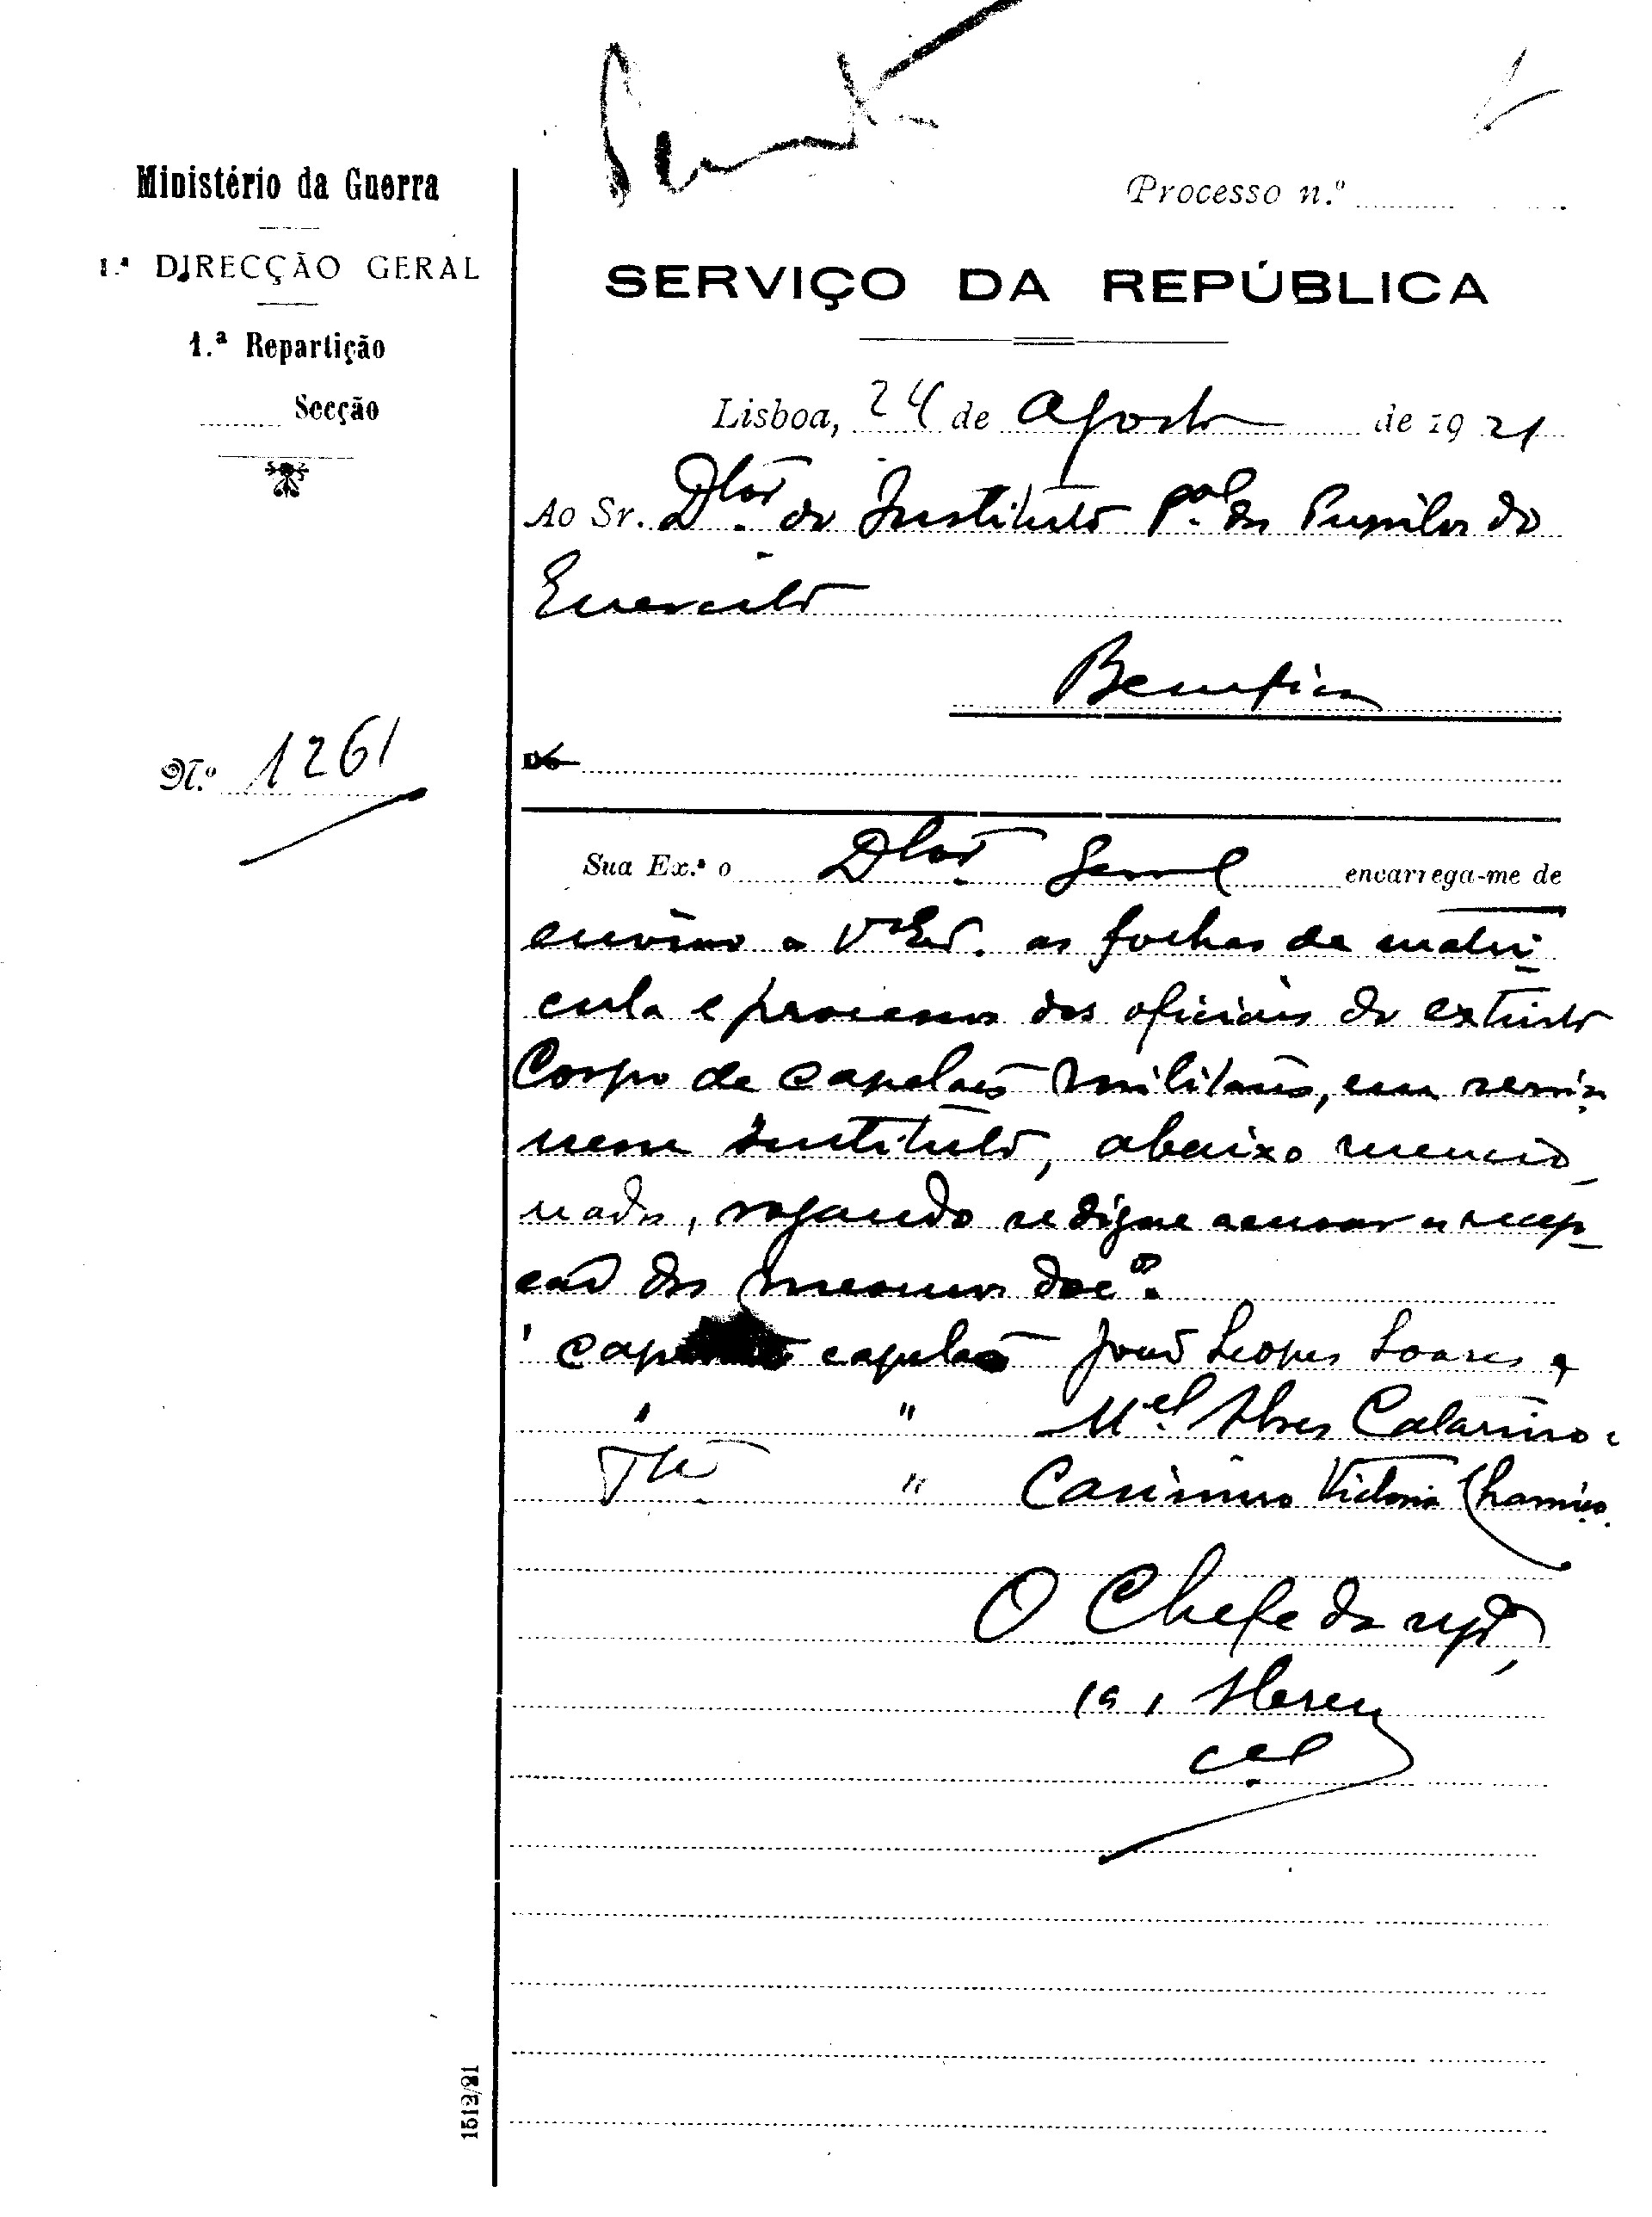 Processo n.º
Ministério da Guerra
1.ª DIRECÇÃO GERAL
1.ª Repartição
Secção
SERVIÇO DA REPÚBLICA
Lisboa, 24 de Agosto de 1921
Ao Sr. Dtor. do Instituto P.al dos Pupilos do
Exercito
Benfica
N.º 1261
Do
Sua Ex.ª o Dtor. Geral encarrega-me de
enviar a V. Ex.ª as folhas de matri-
cula e processos dos oficiais do extinto
Corpo de capelães militares, em serviço
nesse Instituto, abaixo mencio-
nados, rogando se digne acusar a recep-
ção dos mesmos doc.os
capelão João Lopes Soares
" " M.el Alves Catarino
Te. " Casimiro Victoria Chamiço.
O Chefe da rep.,
(a)
Cel.
1512/21